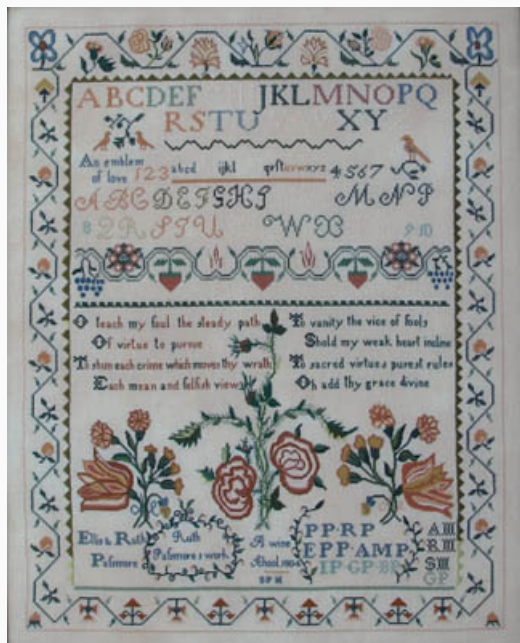 ABCDEF JKLMNOPQ
RSTU XY
An emblem of love
123 abcd ijkl qrstuvwxyz 4567
ABCDEFGHI MNP
8 QR STU WX 9 10
O teach my soul the steady path
Of virtue to pursue
To shun each crime which moves thy wrath
Each mean and selfish view
To vanity the vice of fools
Shold my weak heart incline
To sacred virtues purest rules
Oh add thy grace divine
Ellis & Ruth
Pasmore
Ruth
Pasmore's work
PP·RP
EPP·AMP
IP·GP·BP
A III
R III
S III
GP